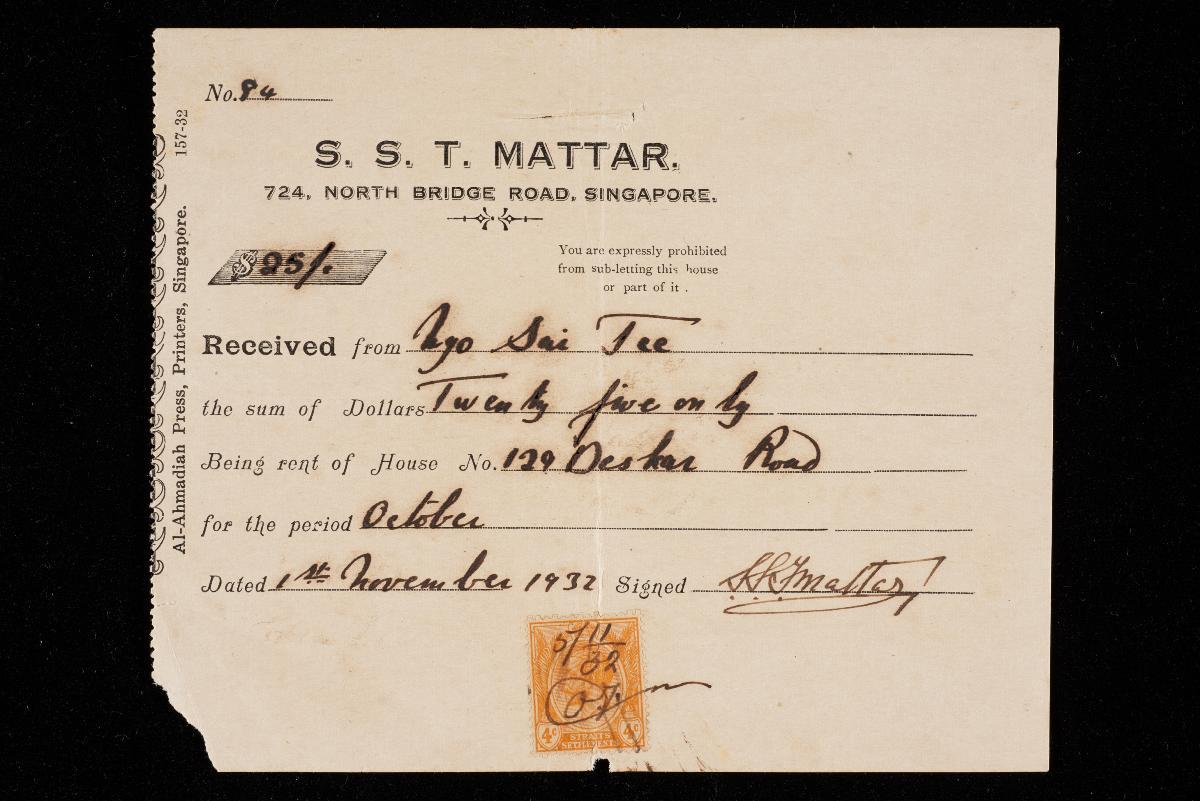 No. 84
S. S. T. MATTAR.
724, NORTH BRIDGE ROAD, SINGAPORE.
$ 25/.
You are expressly prohibited
from sub-letting this house
or part of it .
Received from Ngo Sai Tee
the sum of Dollars Twenty five only
Being rent of House No. 129 Deskar Road
for the period October
Dated 1st November 1932 Signed S.S.T Mattar
5/11
32
4c 4c
STRAITS
SETTLEMENTS
Al-Ahmadiah Press, Printers, Singapore. 157-32